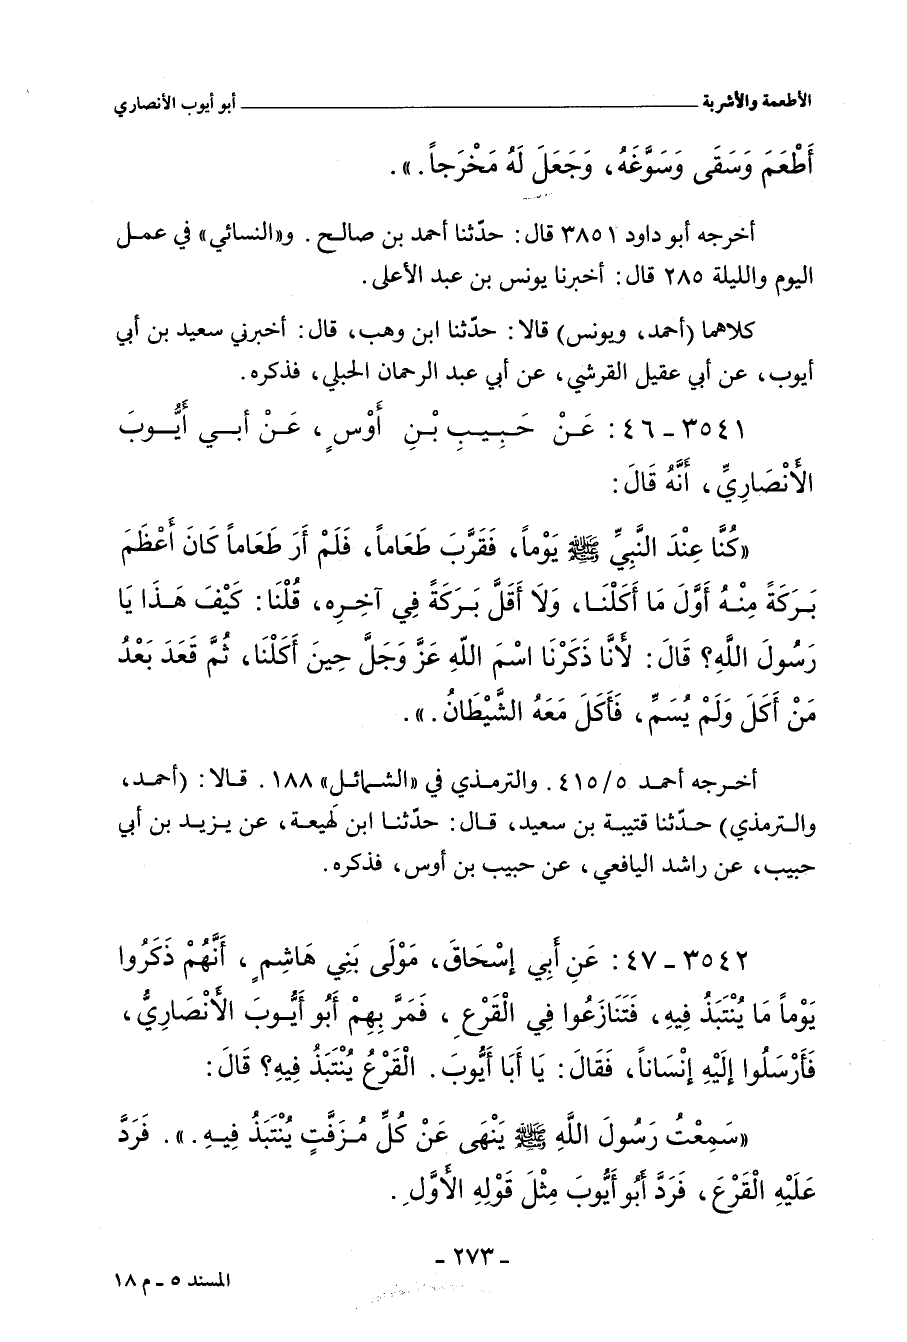 الأطعمة والأشربة ــــــــــــــــــــ أبو أيوب الأنصاري
أَطْعَمَ وَسَقَى وَسَوَّغَهُ، وَجَعَلَ لَهُ مَخْرَجاً.».
أخرجه أبو داود ٣٨٥١ قال: حدّثنا أحمد بن صالح. و«النسائي» في عمل
اليوم والليلة ٢٨٥ قال: أخبرنا يونس بن عبد الأعلى.
كلاهما (أحمد، ويونس) قالا: حدّثنا ابن وهب، قال: أخبرني سعيد بن أبي
أيوب، عن أبي عقيل القرشي، عن أبي عبد الرحمان الحبلي، فذكره.
٣٥٤١ ـ ٤٦: عَنْ حَبِيبِ بْنِ أَوْسٍ، عَنْ أَبي أَيُّوبَ
الأَنْصَارِيِّ، أَنَّهُ قَالَ:
«كُنَّا عِنْدَ النَّبِيِّ ﷺ يَوْماً، فَقَرَّبَ طَعَاماً، فَلَمْ أَرَ طَعَاماً كَانَ أَعْظَمَ
بَرَكَةً مِنْهُ أَوَّلَ مَا أَكَلْنَا، وَلَا أَقَلَّ بَرَكَةً فِي آخِرِهِ، قُلْنَا: كَيْفَ هَذَا يَا
رَسُولَ اللَّهِ؟ قَالَ: لأَنَّا ذَكَرْنَا اسْمَ اللّهِ عَزَّ وَجَلَّ حِينَ أَكَلْنَا، ثُمَّ قَعَدَ بَعْدُ
مَنْ أَكَلَ وَلَمْ يُسَمِّ، فَأَكَلَ مَعَهُ الشَّيْطَانُ.».
أخرجه أحمد ٥/٤١٥. والترمذي في «الشمائل» ١٨٨. قالا: (أحمد،
والترمذي) حدّثنا قتيبة بن سعيد، قال: حدّثنا ابن لهيعة، عن يزيد بن أبي
حبيب، عن راشد اليافعي، عن حبيب بن أوس، فذكره.
٣٥٤٢ ـ ٤٧: عَنِ أَبِي إِسْحَاقَ، مَوْلَى بَنِي هَاشِمٍ، أَنَّهُمْ ذَكَرُوا
يَوْماً مَا يُنْتَبَذُ فِيهِ، فَتَنَازَعُوا فِي الْقَرْعِ، فَمَرَّ بِهِمْ أَبُو أَيُّوبَ الأَنْصَارِيُّ،
فَأَرْسَلُوا إِلَيْهِ إِنْسَاناً، فَقَالَ: يَا أَبَا أَيُّوبَ. الْقَرْعُ يُنْتَبَذُ فِيهِ؟ قَالَ:
«سَمِعْتُ رَسُولَ اللَّهِ ﷺ يَنْهَى عَنْ كُلِّ مُزَفَّتٍ يُنْتَبَذُ فِيهِ.». فَرَدَّ
عَلَيْهِ الْقَرْعَ، فَرَدَّ أَبُو أَيُّوبَ مِثْلَ قَوْلِهِ الأَوَّلِ.
ـ ٢٧٣ ـ
المسند ٥ ـ م ١٨